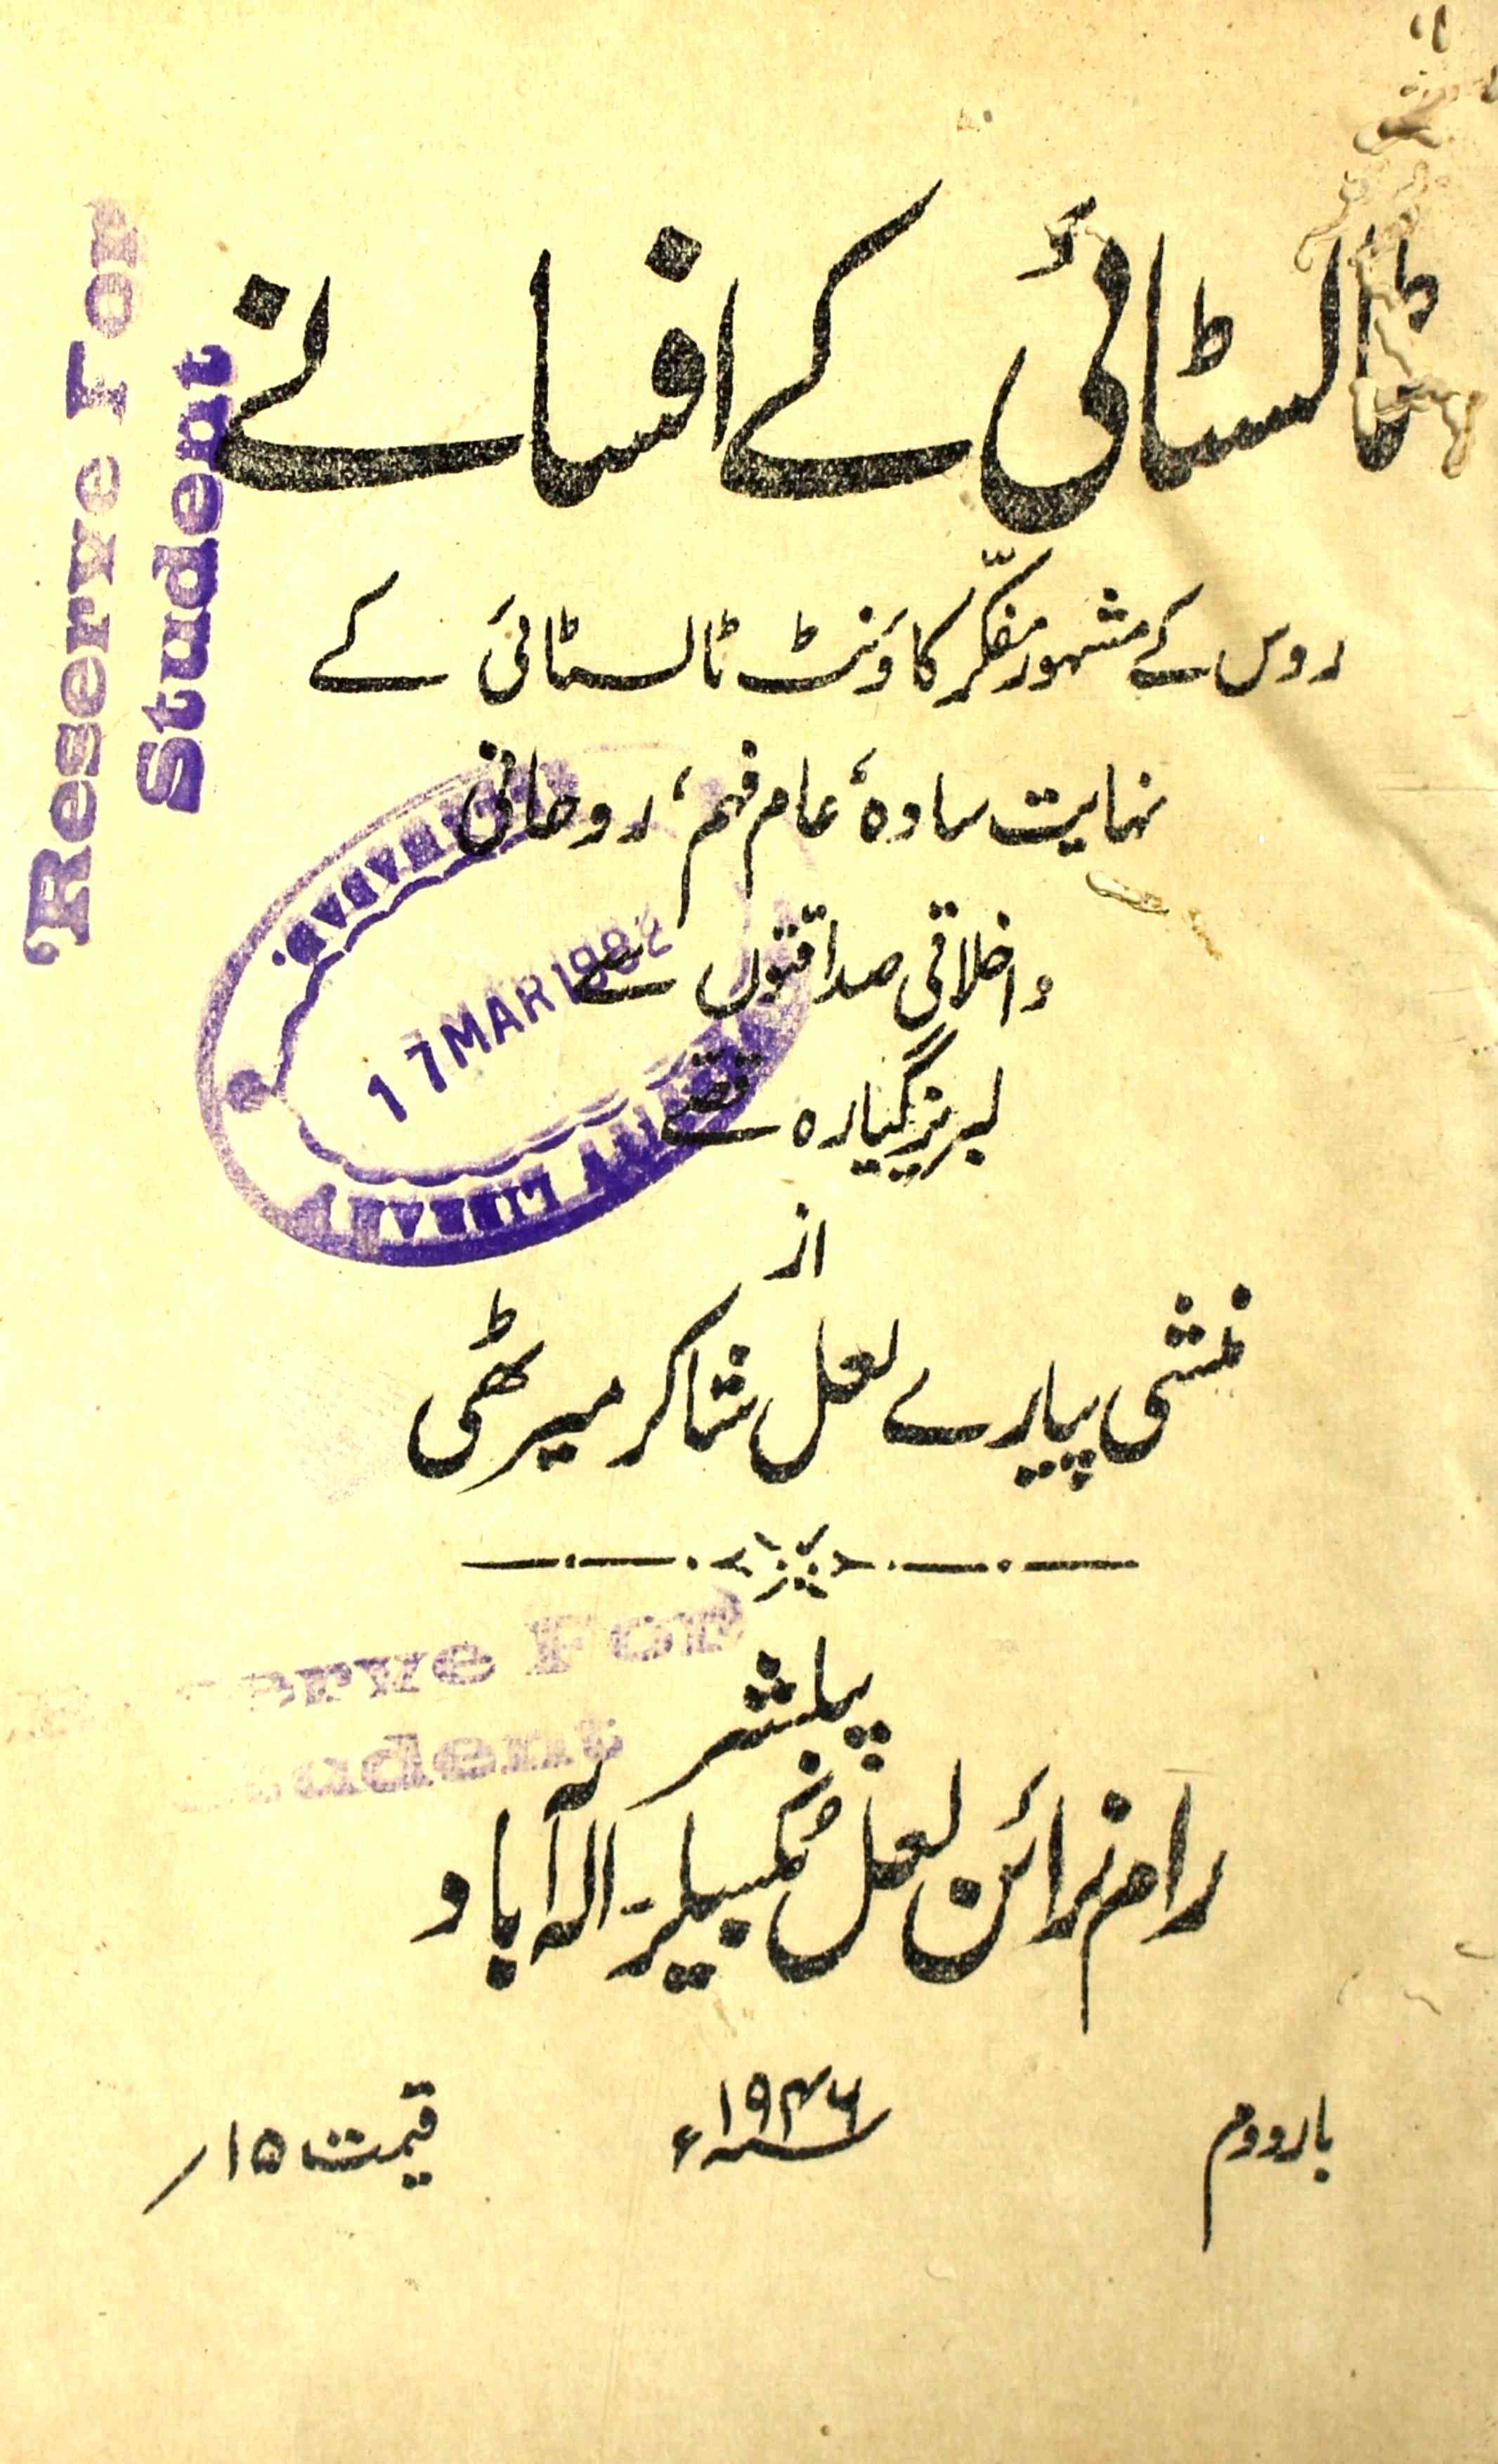 ٹالسٹائی کے افسانے
روس کے مشہور مفکّر کاؤنٹ ٹالسٹائی کے
نہایت سادہ، عام فہم، روحانی
و اخلاقی صداقتوں سے
لبریز گیارہ قصّے
از
منشی پیارے لعل شاکر میرٹھی
پبلشر
رام نرائن لعل بُکسیلر۔ الہ آباد
بار دوم
۱۹۴۶ء
قیمت ۱۵/
Reserve For
Student
17 MAR 1982
LIBRARY
erve For
udent